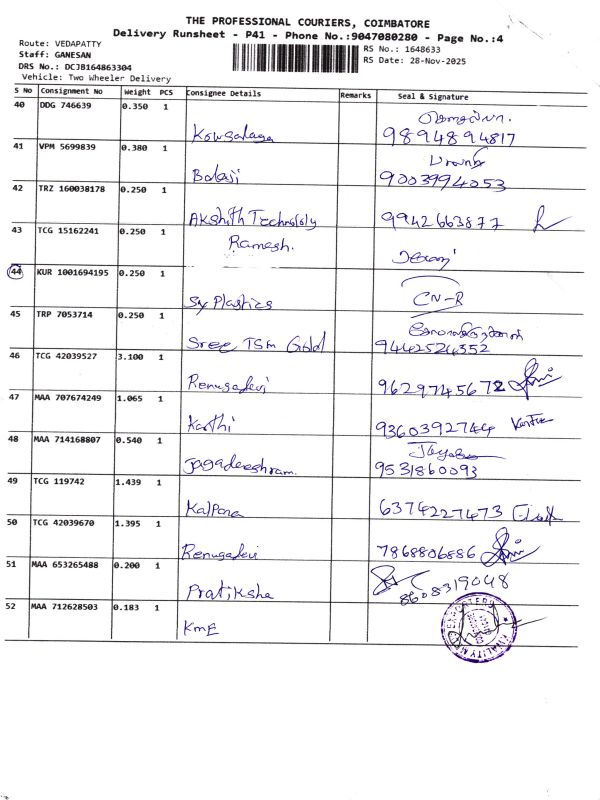 THE PROFESSIONAL COURIERS, COIMBATORE
Delivery Runsheet - P41 - Phone No.:9047080280 - Page No.:4
Route: VEDAPATTY
Staff: GANESAN
DRS No.: DCJB164863304
Vehicle: Two Wheeler Delivery
RS No.: 1648633
RS Date: 28-Nov-2025
S No Consignment No Weight PCS Consignee Details Remarks Seal & Signature
40 DDG 746639 0.350 1
Kowsalaya 9894894817
41 VPM 5699839 0.380 1
பாலாஜி
Balaji 9003994053
42 TRZ 160038178 0.250 1
Akshith Technology 9942663877
43 TCG 15162241 0.250 1
Ramesh.
44 KUR 1001694195 0.250 1
Sy Plastics CN-R
45 TRP 7053714 0.250 1
Sree TSM Gold 9442524352
46 TCG 42039527 3.100 1
Renugadevi 9629745672
47 MAA 707674249 1.065 1
Karthi 9360392744
48 MAA 714168807 0.540 1
Jagadeeshram. 9531860093
49 TCG 119742 1.439 1
Kalpana 6374227473
50 TCG 42039670 1.395 1
Renugadevi 7868806886
51 MAA 653265488 0.200 1
Pratiksha 8608319048
52 MAA 712628503 0.183 1
KME